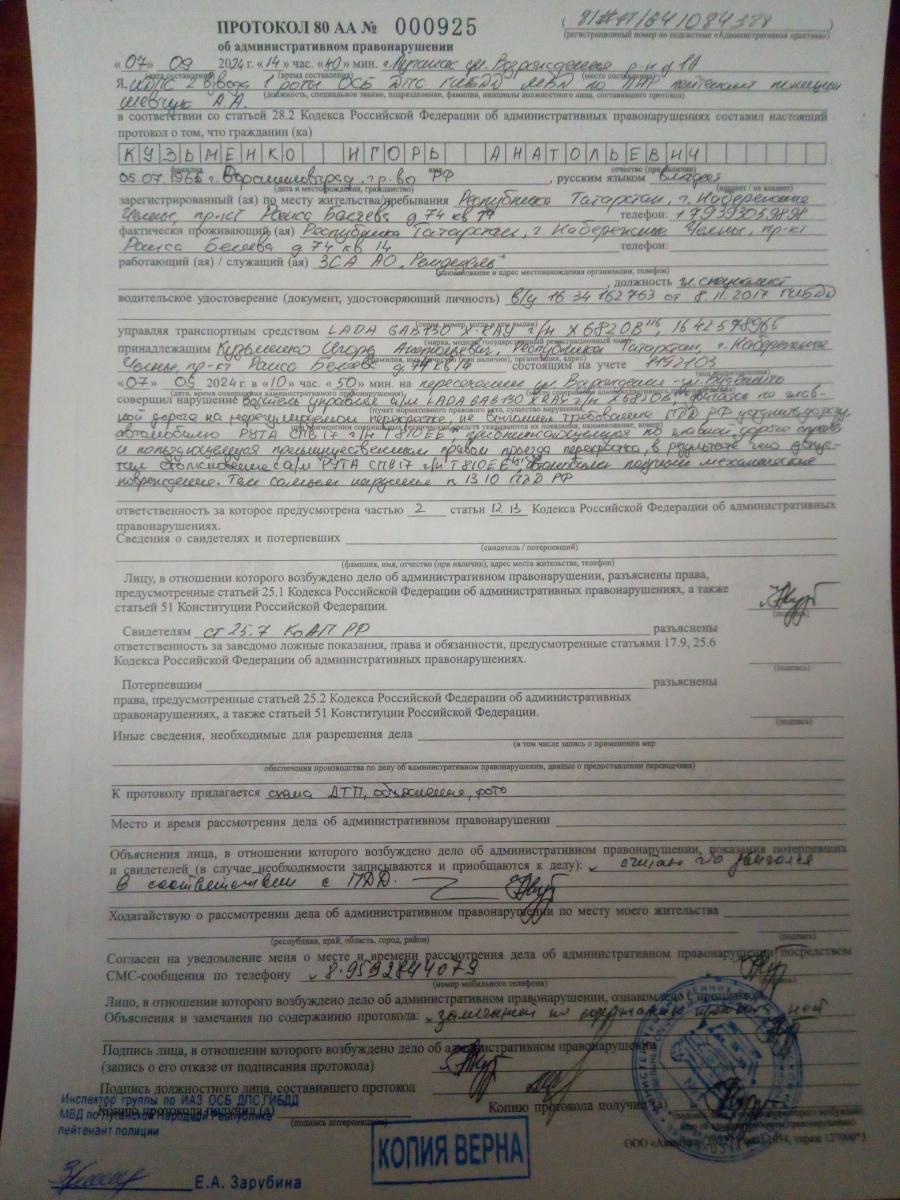 ПРОТОКОЛ 80 АА № 000925
об административном правонарушении
(регистрационный номер по подсистеме «Административная практика»)
« 07 » 09 2024 г. « 14 » час. « 40 » мин.
(дата составления) (время составления) (место составления)
Я, ИДПС 2 взвода 1 роты ОСБ ДПС ГИБДД МВД по ЛНР лейтенант полиции
(должность, специальное звание, подразделение, фамилия, инициалы должностного лица, составившего протокол)
Шевчук А.А.
в соответствии со статьей 28.2 Кодекса Российской Федерации об административных правонарушениях составил настоящий
протокол о том, что гражданин (ка)
КУЗЬМЕНКО ИГОРЬ АНАТОЛЬЕВИЧ
фамилия имя отчество (при наличии)
г. Ворошиловград, гр-во РФ , русским языком владеет
(дата и место рождения, гражданство) (владеет / не владеет)
зарегистрированный (ая) по месту жительства/пребывания Республика Татарстан, г. Набережные
Челны, пр-кт Раиса Беляева д 74 кв 14 телефон:
фактически проживающий (ая) Республика Татарстан, г. Набережные Челны, пр-кт
Раиса Беляева д 74 кв 14 телефон:
работающий (ая) / служащий (ая) ЗСА АО „Ремдизель"
(наименование и адрес местонахождения организации, телефон)
, должность гл. специалист
водительское удостоверение (документ, удостоверяющий личность) в/у 16 34 162763 от 8.11.2017 ГИБДД
(серия, номер, когда и кем выдан)
управляя транспортным средством LADA GAB130 X-RAY г/н Х682ОВ116, 1642578965
(марка, модель, государственный регистрационный знак)
принадлежащим Кузьменко Игорь Анатольевич, Республика Татарстан, г. Набережные
(фамилия, имя, отчество (при наличии), организация, адрес)
Челны, пр-кт Раиса Беляева д 74 кв 14 состоящим на учете 1192103
« 07 » 09 2024 г. в « 10 » час. « 50 » мин. на пересечении ул.
(дата, время совершения административного правонарушения) (место совершения административного правонарушения)
совершил нарушение водитель управляя а/м LADA GAB130 XRAY г/н Х682ОВ116, двигаясь по глав-
(пункт нормативного правового акта, существо нарушения,
ной дороге на нерегулируемом перекрестке, не выполнил требования ПДД РФ уступить дорогу
при применении специальных технических средств указываются их показания, наименование, номер)
автомобилю РУТА СПВ17 г/н Т810ЕЕ, приближающемуся по главной дороге справа
и пользующемуся преимущественным правом проезда перекрестка, в результате чего допус-
тил столкновение с а/м РУТА СПВ17 г/н Т810ЕЕ, автомобили получили механические
повреждения. Тем самым нарушил п. 13.10 ПДД РФ
ответственность за которое предусмотрена частью 2 статьи 12.13 Кодекса Российской Федерации об административных
правонарушениях.
Сведения о свидетелях и потерпевших
(свидетель / потерпевший)
(фамилия, имя, отчество (при наличии), адрес места жительства, телефон)
Лицу, в отношении которого возбуждено дело об административном правонарушении, разъяснены права,
предусмотренные статьей 25.1 Кодекса Российской Федерации об административных правонарушениях, а также
статьей 51 Конституции Российской Федерации.
(подпись)
Свидетелям ст 25.7 КоАП РФ разъяснены
ответственность за заведомо ложные показания, права и обязанности, предусмотренные статьями 17.9, 25.6
Кодекса Российской Федерации об административных правонарушениях.
(подпись)
Потерпевшим разъяснены
права, предусмотренные статьей 25.2 Кодекса Российской Федерации об административных
правонарушениях, а также статьей 51 Конституции Российской Федерации.
(подпись)
Иные сведения, необходимые для разрешения дела
(в том числе запись о применении мер
обеспечения производства по делу об административном правонарушении, данные о предоставлении переводчика)
К протоколу прилагается схема ДТП, объяснения, фото
Место и время рассмотрения дела об административном правонарушении
Объяснения лица, в отношении которого возбуждено дело об административном правонарушении, показания потерпевших
и свидетелей (в случае необходимости записываются и приобщаются к делу): считаю что двигался
в соответствии с ПДД.
Ходатайствую о рассмотрении дела об административном правонарушении по месту моего жительства
(республика, край, область, город, район) (подпись)
Согласен на уведомление меня о месте и времени рассмотрения дела об административном правонарушении посредством
СМС-сообщения по телефону 8-9592844079
(номер мобильного телефона)
Лицо, в отношении которого возбуждено дело об административном правонарушении, ознакомлено с протоколом.
Объяснения и замечания по содержанию протокола: замечаний по содержанию протокола нет
Подпись лица, в отношении которого возбуждено дело об административном правонарушении
(запись о его отказе от подписания протокола)
Подпись должностного лица, составившего протокол
Копию протокола получил (а) Копию протокола получил (а)
(подпись потерпевшего)
Инспектор группы по ИАЗ ОСБ ДПС ГИБДД
МВД по Луганской Народной Республике
лейтенант полиции
Е.А. Зарубина
КОПИЯ ВЕРНА